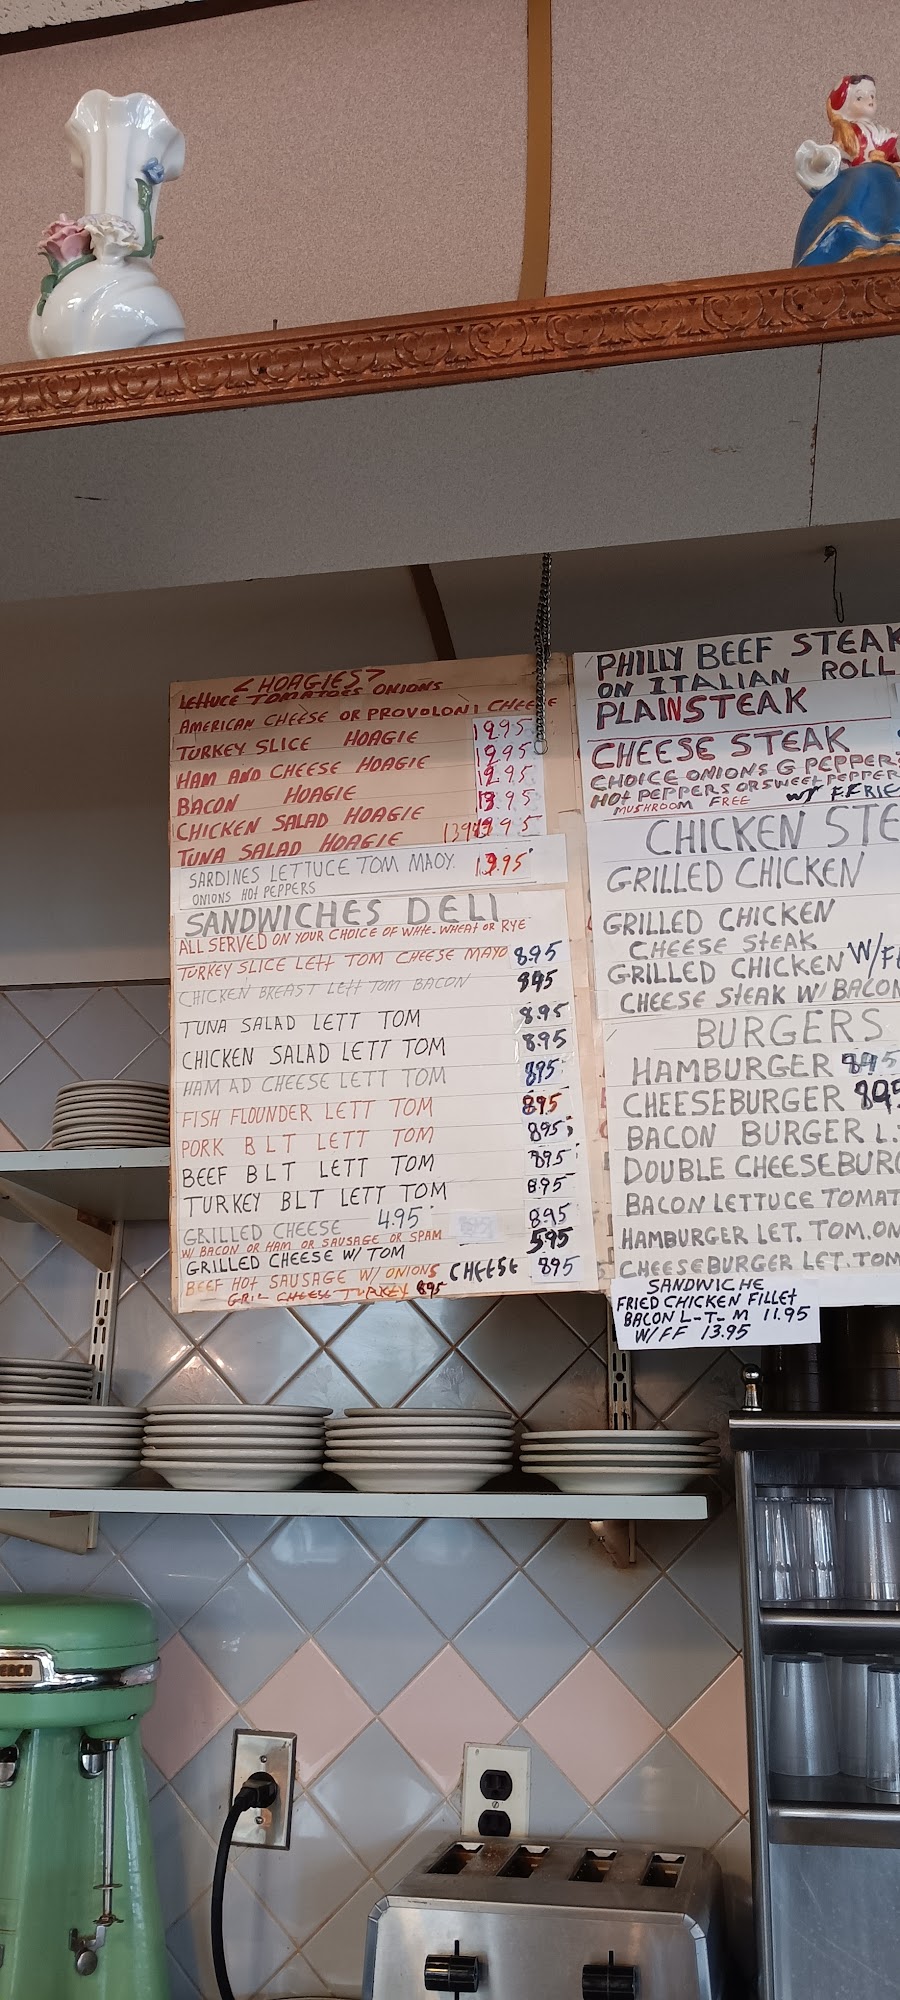 <HOAGIES>
LETTUCE TOMATOES ONIONS
AMERICAN CHEESE OR PROVOLONI CHEESE
TURKEY SLICE HOAGIE
HAM AND CHEESE HOAGIE
BACON HOAGIE
CHICKEN SALAD HOAGIE
TUNA SALAD HOAGIE
SARDINES LETTUCE TOM MAOY.
ONIONS HOT PEPPERS
SANDWICHES DELI
ALL SERVED ON YOUR CHOICE OF WHITE-WHEAT OR RYE
TURKEY SLICE LETT TOM CHEESE MAYO 8.95
CHICKEN BREAST LETT TOM BACON 895
TUNA SALAD LETT TOM 8.95
CHICKEN SALAD LETT TOM 8.95
HAM AD CHEESE LETT TOM 895
FISH FLOUNDER LETT TOM 895
PORK B L T LETT TOM 895
BEEF B L T LETT TOM 895
TURKEY BLT LETT TOM 895
GRILLED CHEESE 4.95 895
W/ BACON OR HAM OR SAUSAGE OR SPAM 595
GRILLED CHEESE W/ TOM
BEEF HOT SAUSAGE W/ ONIONS CHEESE 895
GRIL CHEESE TURKEY 895
PHILLY BEEF STEAK
ON ITALIAN ROLL
PLAIN STEAK
CHEESE STEAK
CHOICE ONIONS G PEPPER
HOT PEPPERS OR SWEET PEPPER
MUSHROOM FREE W/ F.FRIE
CHICKEN STE
GRILLED CHICKEN
GRILLED CHICKEN
CHEESE STEAK
GRILLED CHICKEN W/F
CHEESE STEAK W/ BACON
BURGERS
HAMBURGER 895
CHEESEBURGER 895
BACON BURGER L.
DOUBLE CHEESEBURG
BACON LETTUCE TOMAT
HAMBURGER LET. TOM. ON
CHEESEBURGER LET. TOM
SANDWICHE
FRIED CHICKEN FILLET
BACON L-T-M 11.95
W/FF 13.95
EACH